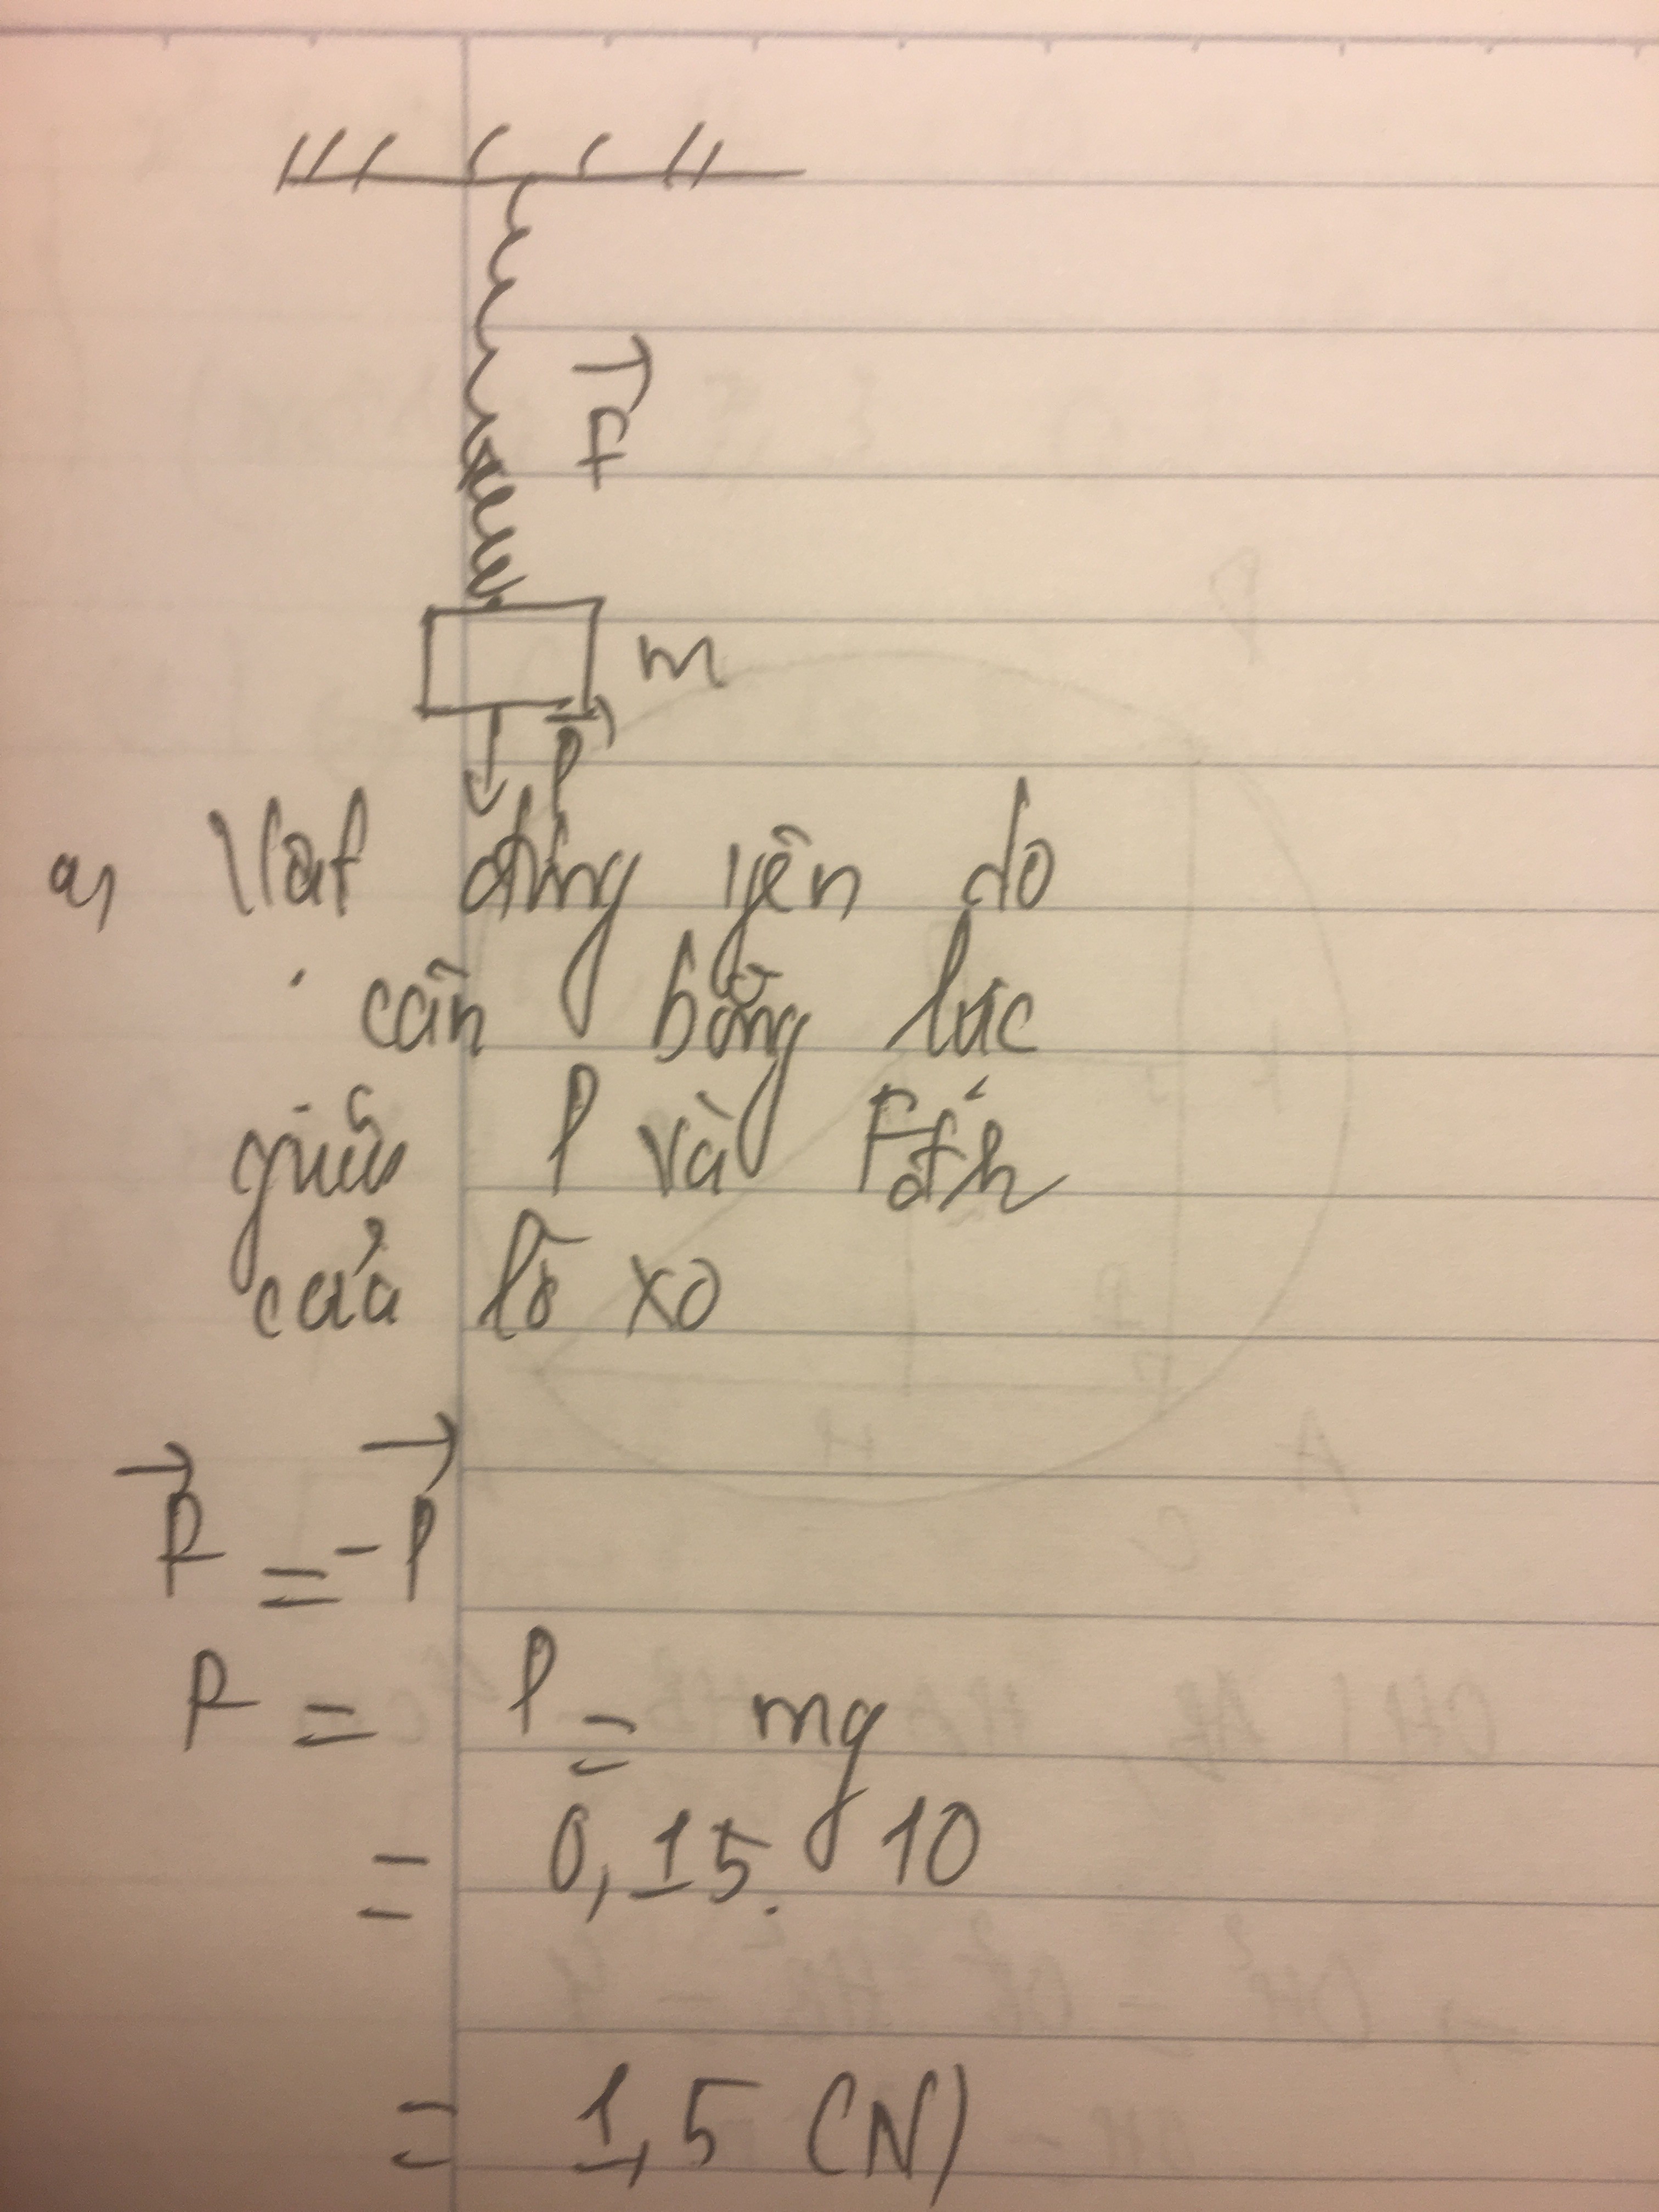 F
m
P
a, Vật đứng yên do
cân bằng lực
giữa P và Fđh
của lò xo
F = -P
F = P = mg
= 0,15. 10
= 1,5 (N)